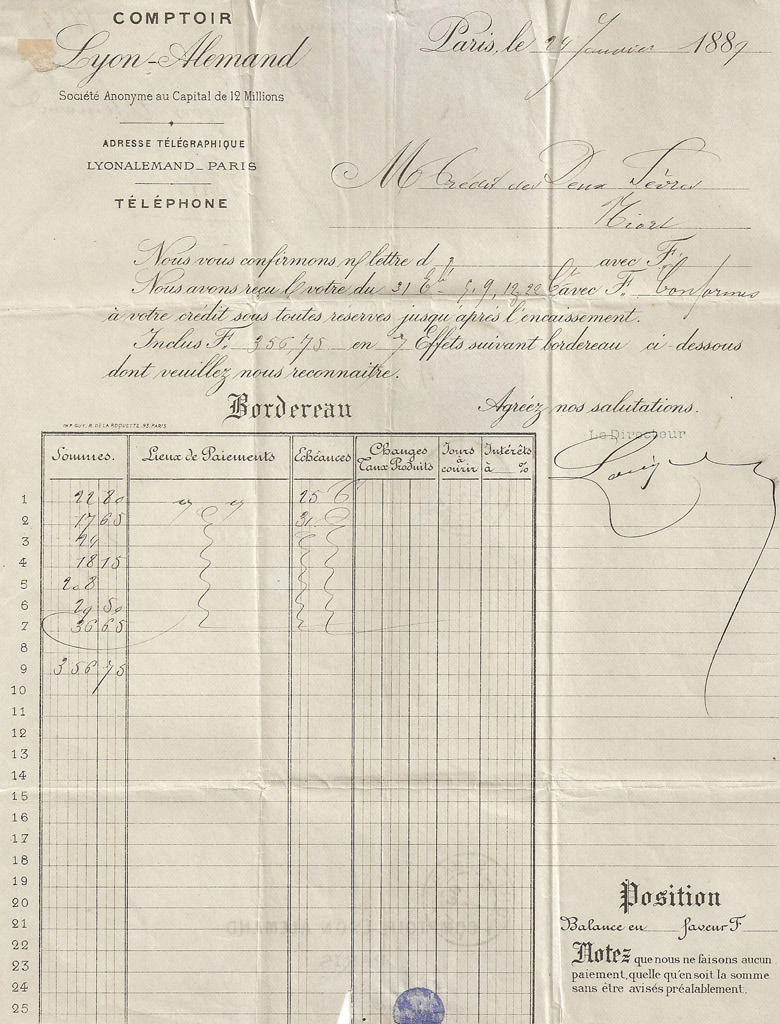 COMPTOIR
Lyon-Alemand
Société Anonyme au Capital de 12 Millions
ADRESSE TÉLÉGRAPHIQUE
LYONALEMAND_PARIS
TÉLÉPHONE
Paris, le 24 Janvier 1889
M Crédit des Deux Sèvres
Niort
Nous vous confirmons n/ lettre d avec F.
Nous avons reçu l votre du 21 5, 9, 12, 22 avec F. Conformes
à votre crédit sous toutes reserves jusqu'après l'encaissement.
Inclus F. 356,75 en 7 Effets suivant bordereau ci-dessous
dont veuillez nous reconnaitre.
Bordereau
Agréez nos salutations.
IMP. GUY, R. DE LA ROQUETTE. 93. PARIS
Le Directeur
Sommes. Lieux de Paiements Echéances Changes Taux Produits Jours à courir Intérêts à %
1 22 80 25
2 17 65 31
3 24
4 18 15
5 208
6 29 50
7 36 65
8
9 356 75
10
11
12
13
14
15
16
17
18
19
20
21
22
23
24
25
Position
Balance en faveur F
Notez que nous ne faisons aucun
paiement, quelle qu'en soit la somme
sans être avisés préalablement.